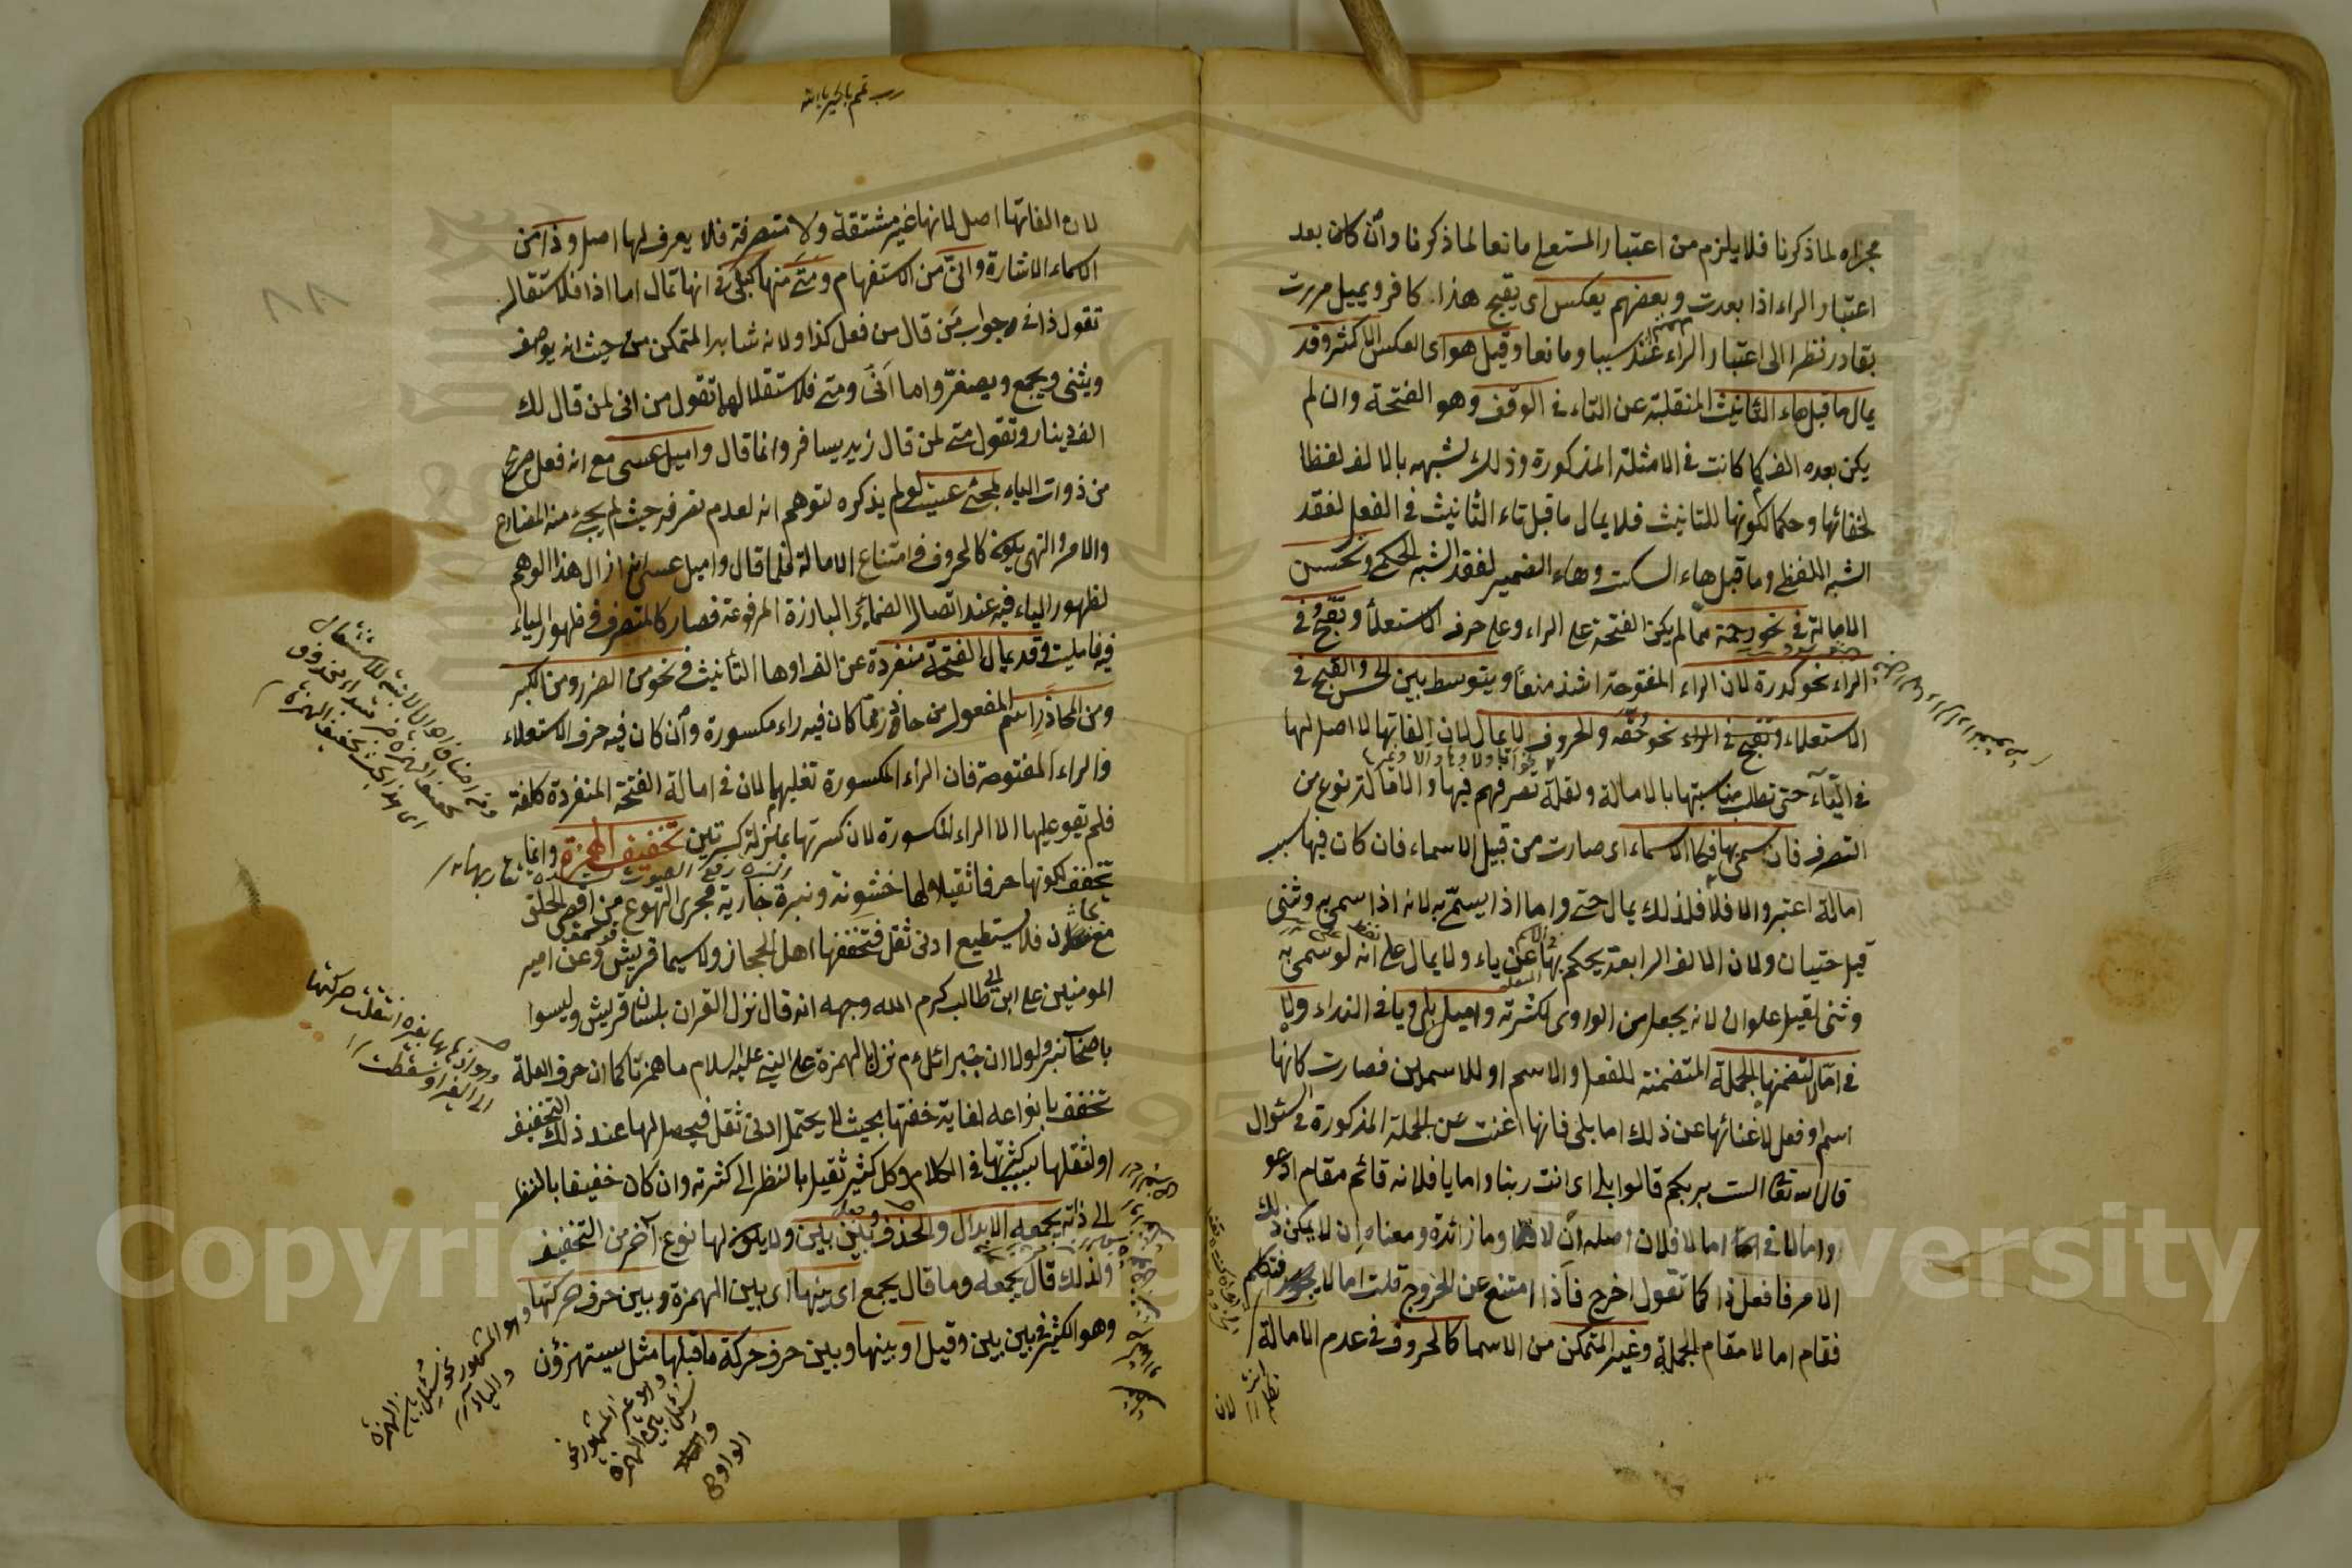 مجراه لما ذكرنا فلا يلزم من اعتبار المستعلى مانعا لما ذكرنا وان كان بعد
اعتبار الراء اذا بعدت وبعضهم يعكس اى يقبح هذا كافر ويميل مررت
بقادر نظرا الى اعتبار الراء عند سببا ومانعا وقيل هو اى العكس الاكثر وقد
يمال ما قبل هاء التأنيث المنقلبة عن التاء فى الوقف وهو الفتحة وان لم
يكن بعده الف كما كانت فى الامثلة المذكورة وذلك لشبهه بالالف لفظا
لخفائها وحكما لكونها للتانيث فلا يمال ما قبل تاء التانيث فى الفعل لفقد
الشبه اللفظى وما قبل هاء السكت وهاء الضمير لفقد الشبه الحكمى وتحسن
الامالة فى نحو رحمة مما لم يكن الفتحة على الراء وعلى حرف الاستعلاء وتقبح فى
الراء نحو كدرة لان الراء المفتوحة اشد منعا ويتوسط بين الحسن والقبح فى
الاستعلاء وتقبح فى الراء نحو حقة والحروف لا يمال لان الفاتها لا اصل لها
فى الياء حتى تطلب مناسبتها بالامالة ولقلة تصرفهم فيها والامالة نوع من
التصرف فان سمى بها فكالاسماء اى صارت من قبيل الاسماء فان كان فيها سبب
امالة اعتبر والا فلا فلذلك يمال حتى واما اذا يسمى به لانه اذا سمى به وثنى
قيل حتيان ولان الالف الرابعة يحكم بها عن ياء ولا يمال على انه لو سمى به
وثنى لقيل علوان لانه يجعل من الواوى لكثرته واميل بلى ويا فى النداء ولا
فى امالا لتضمنها الجملة المتضمنة للفعل والاسم او للاسمين فصارت كانها
اسم او فعل لاغنائها عن ذلك اما بلى فانها اغنت عن الجملة المذكورة فى السؤال
قال الله تعا الست بربكم قالوا بلى اى انت ربنا واما يا فلانه قائم مقام ادعو
واما لا فى امالا فلان اصله ان لا وما زائدة ومعناه ان لا يكن ذلك
الامر فافعل ذا كما تقول اخرج فاذا امتنع عن الخروج قلت امالا فتكلم
فقام امالا مقام الجملة وغير المتمكن من الاسما كالحروف فى عدم الامالة
لان
رب تمم بالخير يا الله
لان الفاتها اصل لانها غير مشتقة ولا متصرفة فلا يعرف لها اصل وذا من
الاسماء الاشارة وانى من الاستفهام ومتى منها كبلى فى انها تمال اما اذا فلاستقلاله
تقول ذا فى جواب من قال من فعل كذا ولانه شابه المتمكن من حيث انه يوصف
ويثنى ويجمع ويصغر واما انى ومتى فلاستقلالهما تقول من انى لمن قال لك
الف دينار وتقول متى لمن قال زيد يسافر وانما قال واميل عسى مع انه فعل صريح
من ذوات الياء لمجئ عسيت لو لم يذكره لتوهم انه لعدم تصرفه حيث لم يجئ منه المضارع
والامر والنهى يكون كالحروف فى امتناع الامالة فلما قال واميل عسى ازال هذا الوهم
لظهور الياء فيه عند اتصال الضمائر البارزة المرفوعة فصار كالمتصرف فى ظهور الياء
فيه فاميلت وقد يمال الفتحة منفردة عن الف او ها التأنيث فى نحو من الضرر ومن الكبر
ومن المحاذر اسم المفعول من حاذر مما كان فيه راء مكسورة وان كان فيه حرف الاستعلاء
والراء المفتوحة فان الراء المكسورة تغلبهما لان فى امالة الفتحة المنفردة كلفة
فلم تقو عليها الا الراء المكسورة لان كسرتها بمنزلة كسرتين تخفيف الهمزة وانما
تخفف لكونها حرفا ثقيلا ولها خشونة ونبرة جارية مجرى التهوع من اقصى الحلق
فلا يستطيع ادنى ثقل فتخففها اهل الحجاز ولا سيما قريش وعن امير
المومنين على ابن ابى طالب كرم الله وجهه انه قال نزل القران بلسان قريش وليسوا
باصحاب نبر ولولا ان جبرائل ءم نزل بالهمزة على النبى عليه السلام ما همزنا كما ان حرف العلة
تخفف بانواعه لغاية خفتها بحيث لا يحتمل ادنى ثقل فيحصل لها عند ذلك التخفيف
او لثقلها بسبب كثرتها فى الكلام وكل كثير ثقيل بالنظر الى كثرته وان كان خفيفا بالنظر
الى ذاته يجمعه الابدال والحذف وبين بين ولا يكون لها نوع آخر من التخفيف
ولذلك قال يجمعه وما قال يجمع اى بينها اى بين الهمزة وبين حرف حركتها
وهو الكثير فى بين بين وقيل او بينها وبين حرف حركة ما قبلها مثل يستهزؤن
وهو المشهور نحو
سئل بين الهمزة
والياء
وهو غير المشهور نحو
سئل بين الهمزة
والواو